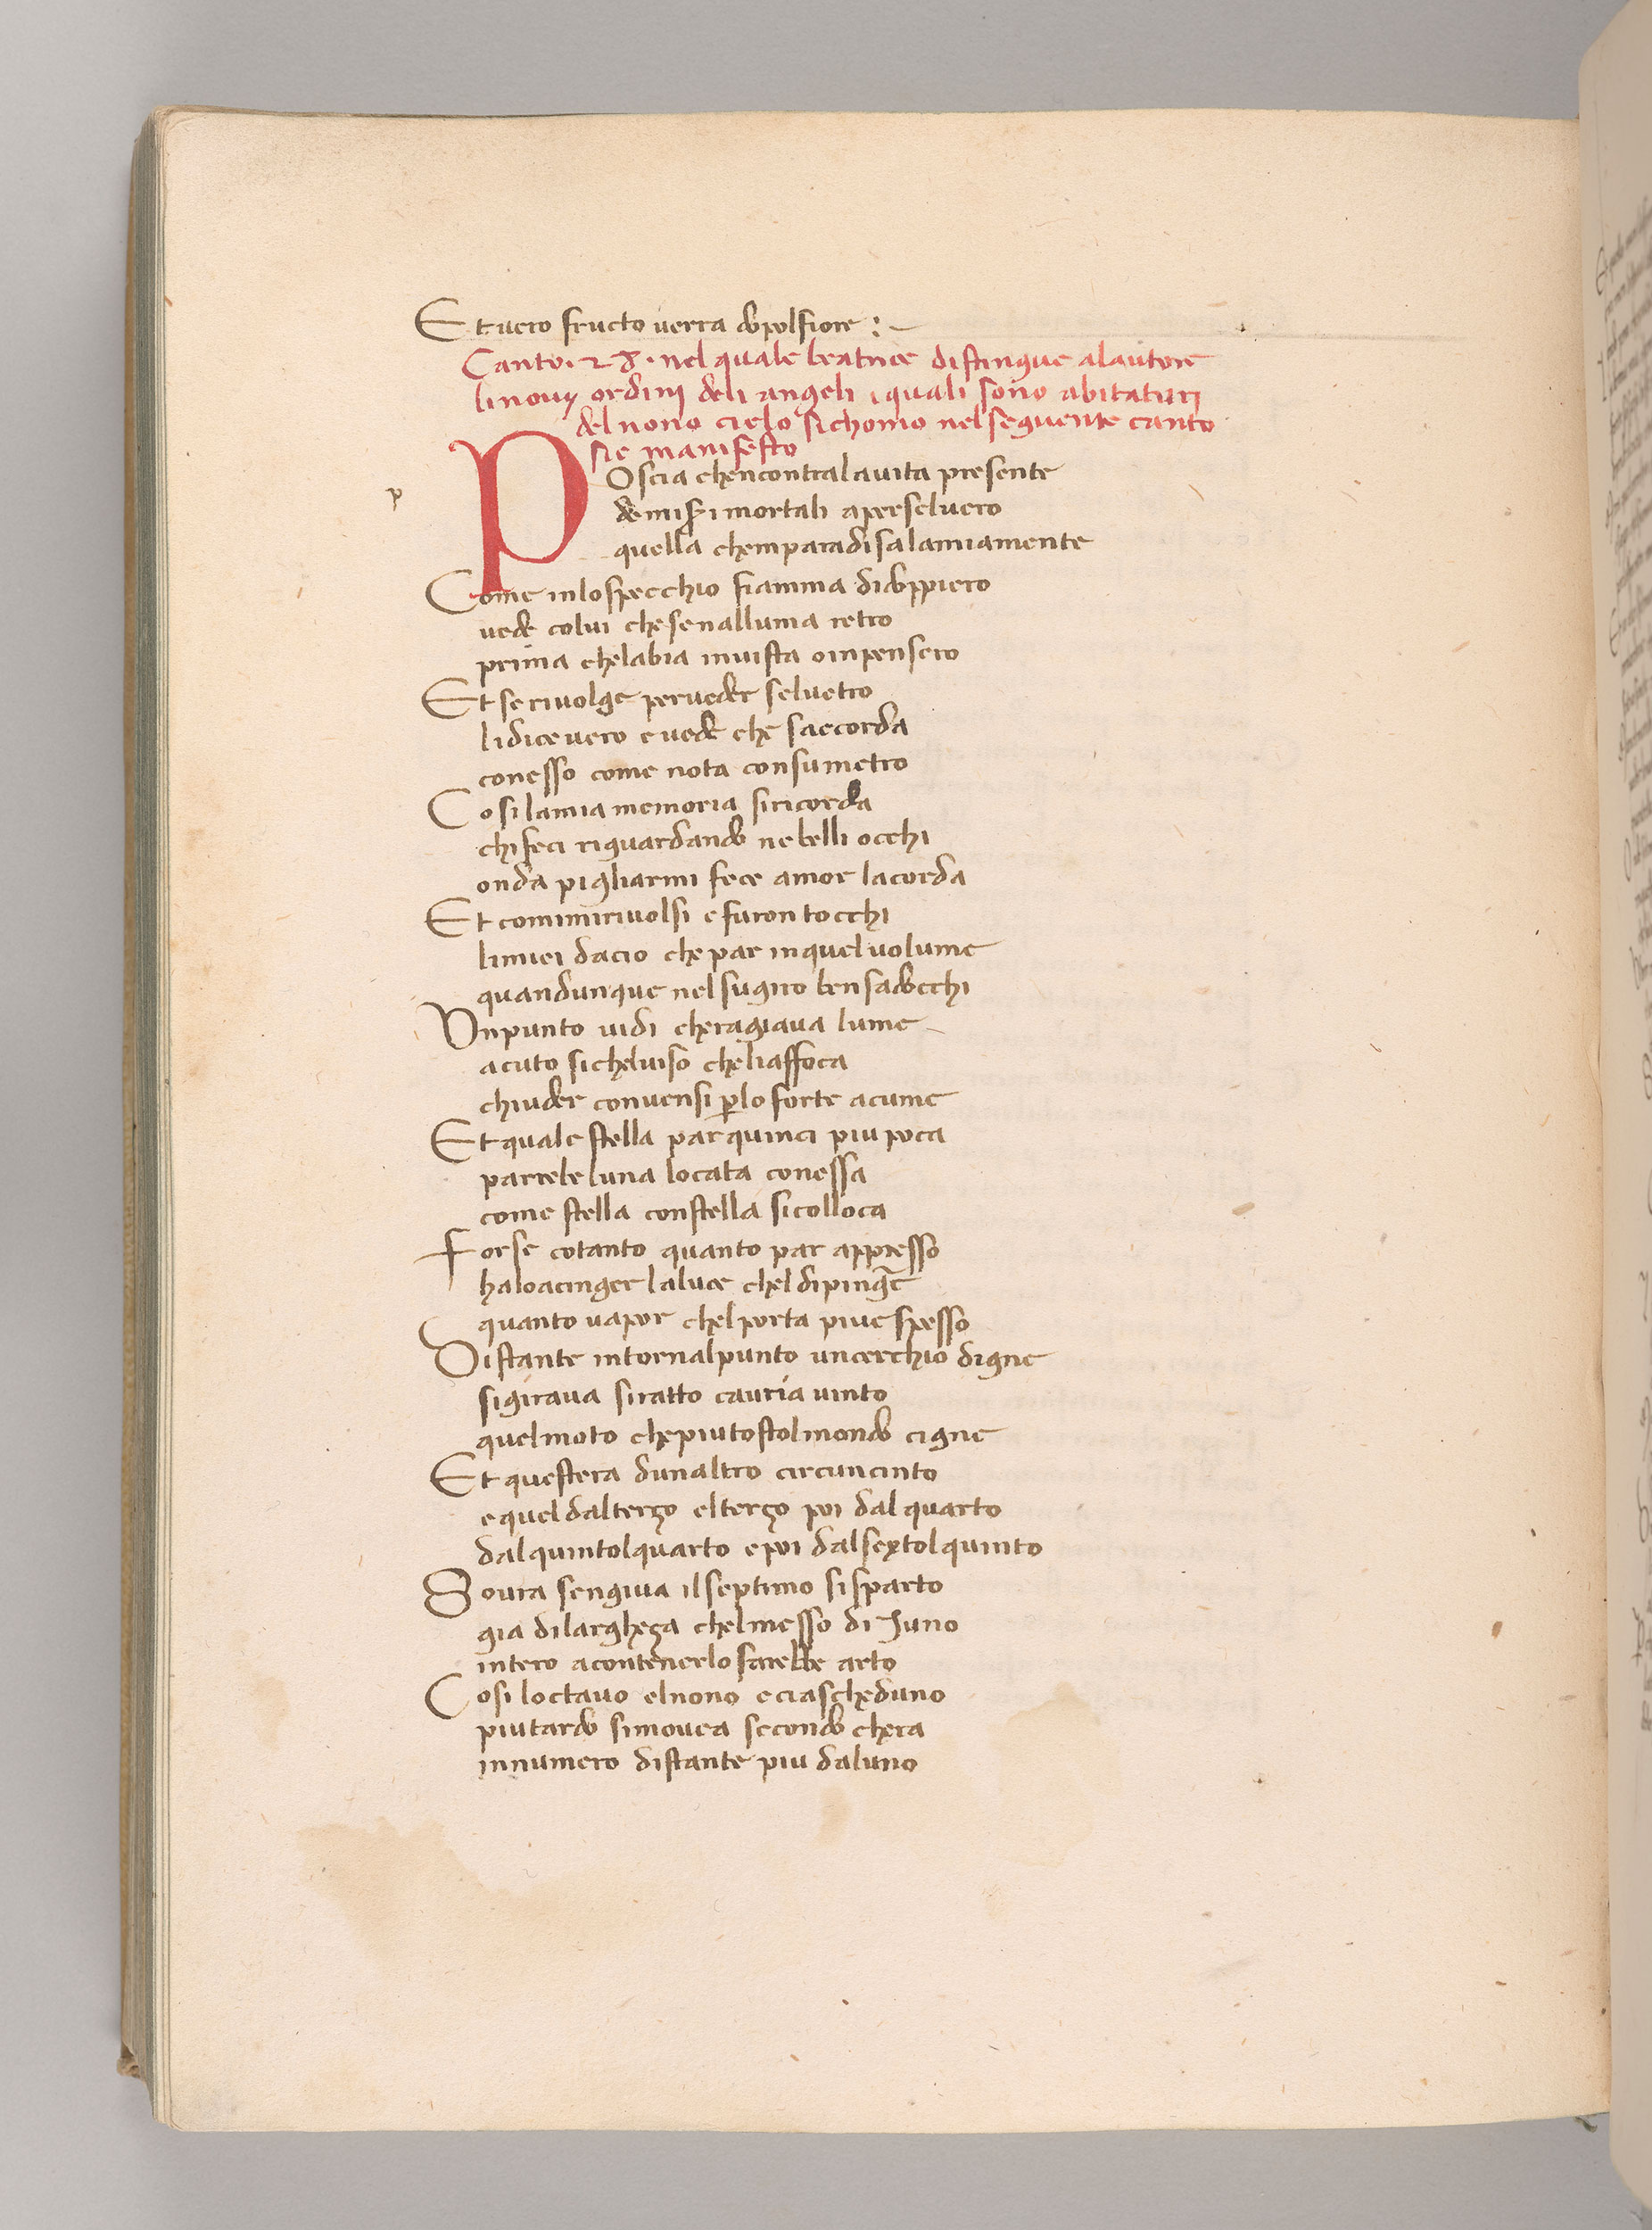 Et uero fructo uerra dopol fiore :
Canto . 28 . nel quale beatrice distingue alautore
li nouy ordini deli angeli i quali sono abitaturi
del nono cielo sichomo nel sequente canto
sie manifesto
p
POscia chencontra lauita presente
demiseri mortali aperse luero
quella chemparadisa lamia mente
Come inlo specchio fiamma di doppiero
uede colui che senalluma retro
prima chelabia inuista o inpensero
Et se riuolge per ueder seluetro
li dice uero e uede che saccorda
conesso come nota consumetro
Cosi lamia memoria siricorda
chi feci riguardando nebelli occhi
onda pigliarmi fece amor lacorda
Et commiriuolsi e furon tocchi
li miei dacio che par inquel uolume
quandunque nel sugiro ben sadocchi
Un punto uidi cheragiaua lume
acuto si cheluiso cheliaffoca
chiuder conuensi per lo forte acume
Et quale stella par quinci piu poca
parrebe luna locata conessa
come stella constella sicolloca
Forse cotanto quanto par appresso
halo acinger laluce chel dipinge
quanto uapor chel porta piu e spesso
Distante intornal punto un cerchio digne
sigiraua siratto cauria uinto
quel moto che piu tostol mondo cigne
Et questera dunaltro circuncinto
e quel dal terzo el terzo poi dal quarto
dal quintol quarto e poi dal sextol quinto
Soura sengiua il septimo si sparto
gia di larghezza chel messo di Juno
intero acontenerlo sarebbe arto
Cosi loctauo el nono e ciascheduno
piu tardo simouea secondo chera
innumero distante piu daluno